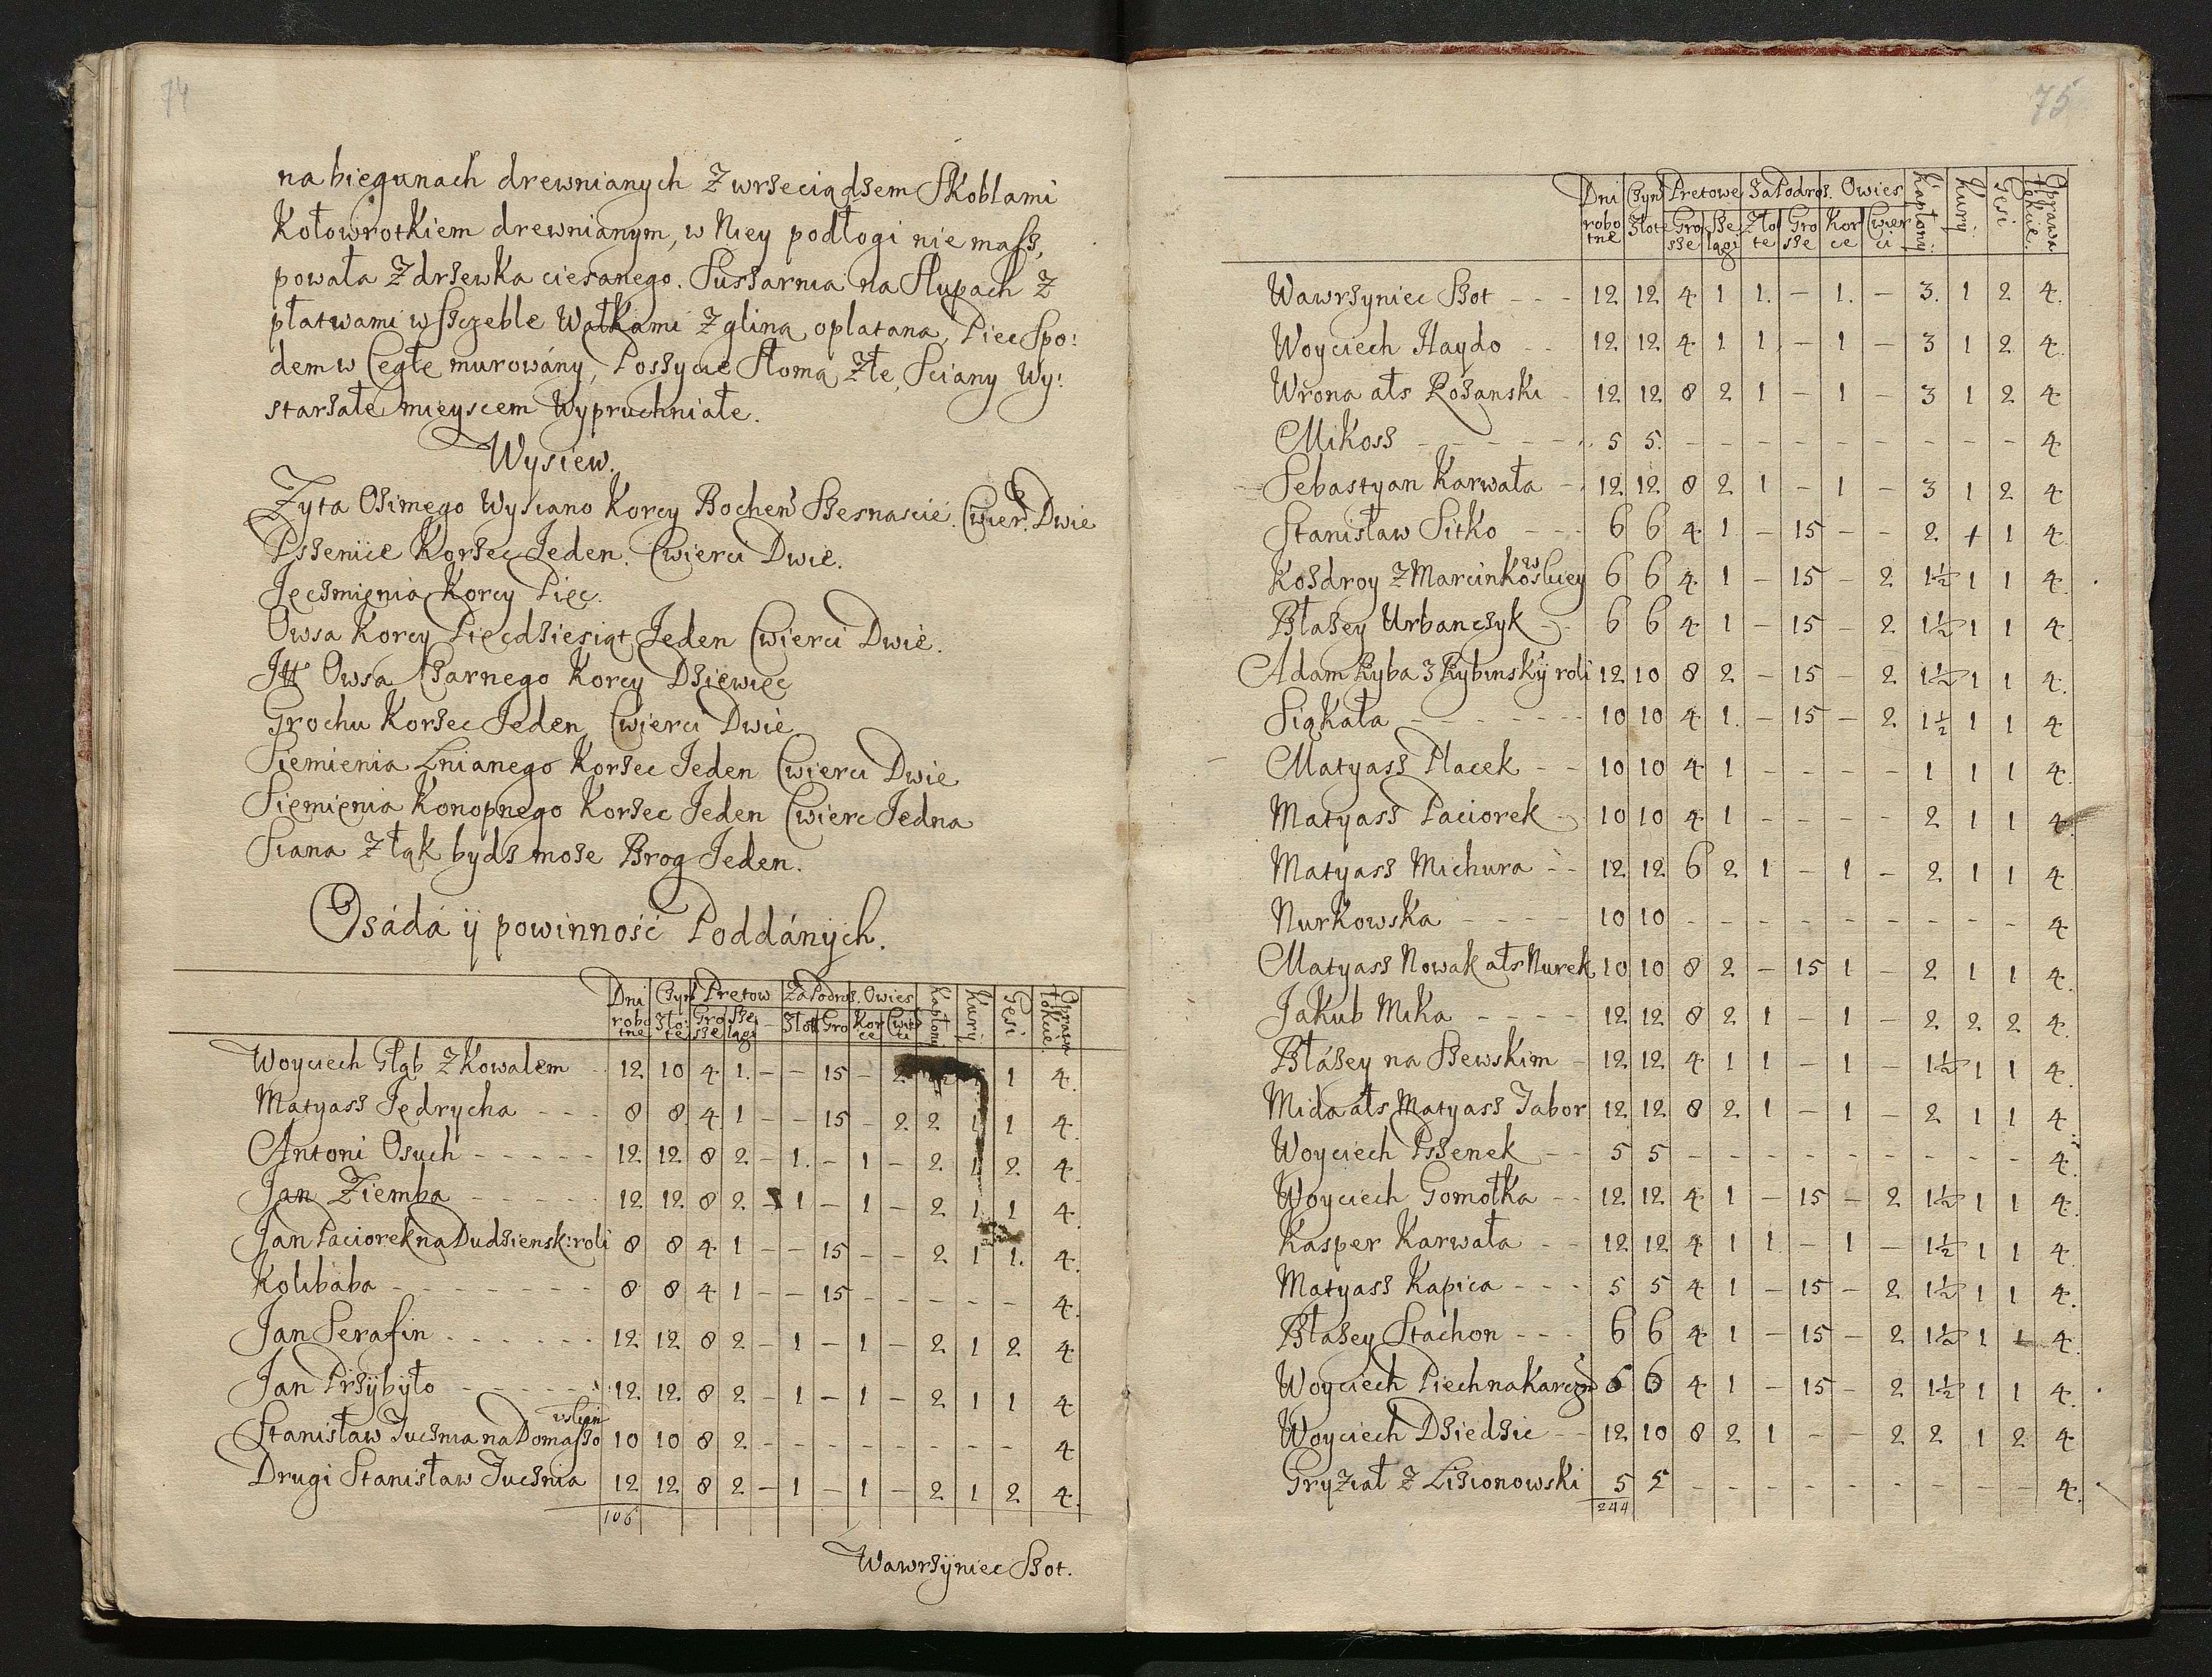 74
na biegunach drewnianych Z wrzeciądzem Skoblami
Kołowrotkiem drewnianym, w Niey podłogi nie masz,
powała Z drzewka ciesanego. Suszarnia na Słupach Z
płatwami w Szczeble Wałkami Z gliną oplatana, Piec Spo:
dem w Cegłe murowány, Poszycie Słomą Złe, Sciany Wy:
starzałe mieyscem Wypruchniałe.
Wysiew.
Zyta Ozimego Wysiano Korcy Bocheń Szesnascie. Cwier. Dwie
Pszenice Korzec Jeden. Cwierci Dwie.
Jęczmienia Korcy Pięc.
Owsa Korcy Pięcdziesiąt Jeden Cwierci Dwie.
Itt Owsa Czarnego Korcy Dziewięc
Grochu Korzec Jeden Cwierci Dwie
Siemienia Lnianego Korzec Jeden Cwierci Dwie
Siemienia Konopnego Korzec Jeden Cwierc Jedna
Siana Z łąk bydz moze Brog Jeden.
Osádá ÿ powinność Poddánych.
Dni robotne Czyn Złote Pretow Grosze Szelągi Za Podroz. Złott Gro Owies Korce Cwierci Kapłony Kury Gęsi Oprawa łokcie.
Woyciech Głąb Z Kowalem - 12 10 4 1. - - 15 - 2 1 4.
Matyasz Jędrycha - - - 8 8 4 1 - - 15 - 2 2 1 1 4.
Antoni Osuch - - - - - 12 12 8 2 - 1. - 1 - 2 1 2 4.
Jan Ziemba - - - - - 12 12 8 2 - 1 - 1 - 2 1 1 4.
Jan Paciorek na Dudziensk: roli 8 8 4 1 - - 15 - - 2 1 1. 4.
Kolibaba - - - - - - - 8 8 4 1 - - 15 - - - - - 4.
Jan Serafin - - - - - - 12 12 8 2 - 1 - 1 - 2 1 2 4
Jan Przÿbyło - - - - - 12 12 8 2 - 1 - 1 - 2 1 1 4
Stanisław Juchnia na Domaszo 10 10 8 2 - - - - - - - - 4
Drugi Stanisław Juchnia 12 12 8 2 - 1 - 1 - 2 1 2 4.
106
Wawrzÿniec Szot.
75
Dni robotne Czyn Złote Pretowe Grosze Szelagi Za Podroz. Złote Grosze Owies Korce Cwierci Kapłony Kury Gęsi Oprawa łokcie.
Wawrzyniec Szot - - - 12 12 4 1 1. - 1. - 3. 1 2 4.
Woyciech Haydo - - 12 12 4 1 1 - 1 - 3 1 2 4.
Wrona als Rozanski - 12 12 8 2 1 - 1 - 3 1 2 4
Mikosz - - - - - - 5 5 - - - - - - - - - 4
Sebastyan Karwała - 12 12 8 2 1 - 1 - 3 1 2 4
Stanisław Sitko - - - 6 6 4 1 - 15 - - 2 1 1 4
Kozdroy Z Marcinkows 6 6 4 1 - 15 - 2 1½ 1 1 4
Błazey Urbanczyk - 6 6 4 1 - 15 - 2 1½ 1 1 4.
Adam Ryba z Rybinskÿ roli 12 10 8 2 - 15 - 2 1½ 1 1 4.
Siąkała - - - - - - 10 10 4 1. - 15 - 2 1½ 1 1 4
Matyasz Placek - - 10 10 4 1 - - - - 1 1 1 4.
Matyasz Paciorek - 10 10 4 1 - - - - 2 1 1 4.
Matyasz Michura - - 12 12 6 2 1 - 1 - 2 1 1 4
Nurkowska - - - - 10 10 - - - - - - - - - 4
Matyasz Nowak als Nurek 10 10 8 2 - 15 1 - 2 1 1 4.
Jakub Mika - - - - 12 12 8 2 1 - 1 - 2 2 2 4.
Błázey na Szewskim - 12 12 4 1 1 - 1 - 1½ 1 1 4.
Mida als Matyasz Jabor 12 12 8 2 1 - 1 - 2 1 1 4.
Woyciech Pszenek - - 5 5 - - - - - - - - - 4.
Woyciech Gomołka - - 12 12 4 1 - 15 - 2 1½ 1 1 4.
Kasper Karwała - - 12 12 4 1 1 - 1 - 1½ 1 1 4.
Matyasz Kapica - - - 5 5 4 1 - 15 - 2 1½ 1 1 4.
Błazey Stachon - - - 6 6 4 1 - 15 - 2 1½ 1 1 4.
Woyciech Piech na Karczm 6 6 4 1 - 15 - 2 1½ 1 1 4.
Woyciech Dziedzic - - 12 10 8 2 1 - - 2 2 1 2 4
Gryział Z Lizionowski 5 5 - - - - - - - - - 4.
244